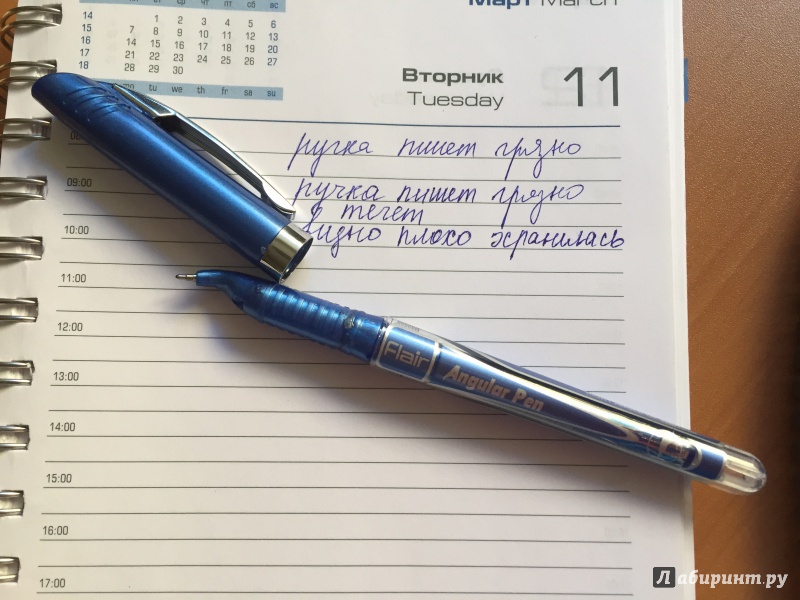 Март March
пн вт ср чт пт сб вс
14 1 2 3 4 5 6
15 7 8 9 10 11 12 13
16 14 15 16 17 18 19 20
17 21 22 23 24 25 26 27
18 28 29 30
mo tu we th fr sa su
Вторник 11
Tuesday
ручка пишет грязно
09:00
ручка пишет грязно
течет
10:00
видно плохо хранилась
11:00
12:00
Flair Angular Pen
13:00
14:00
15:00
16:00
17:00
Лабиринт.ру